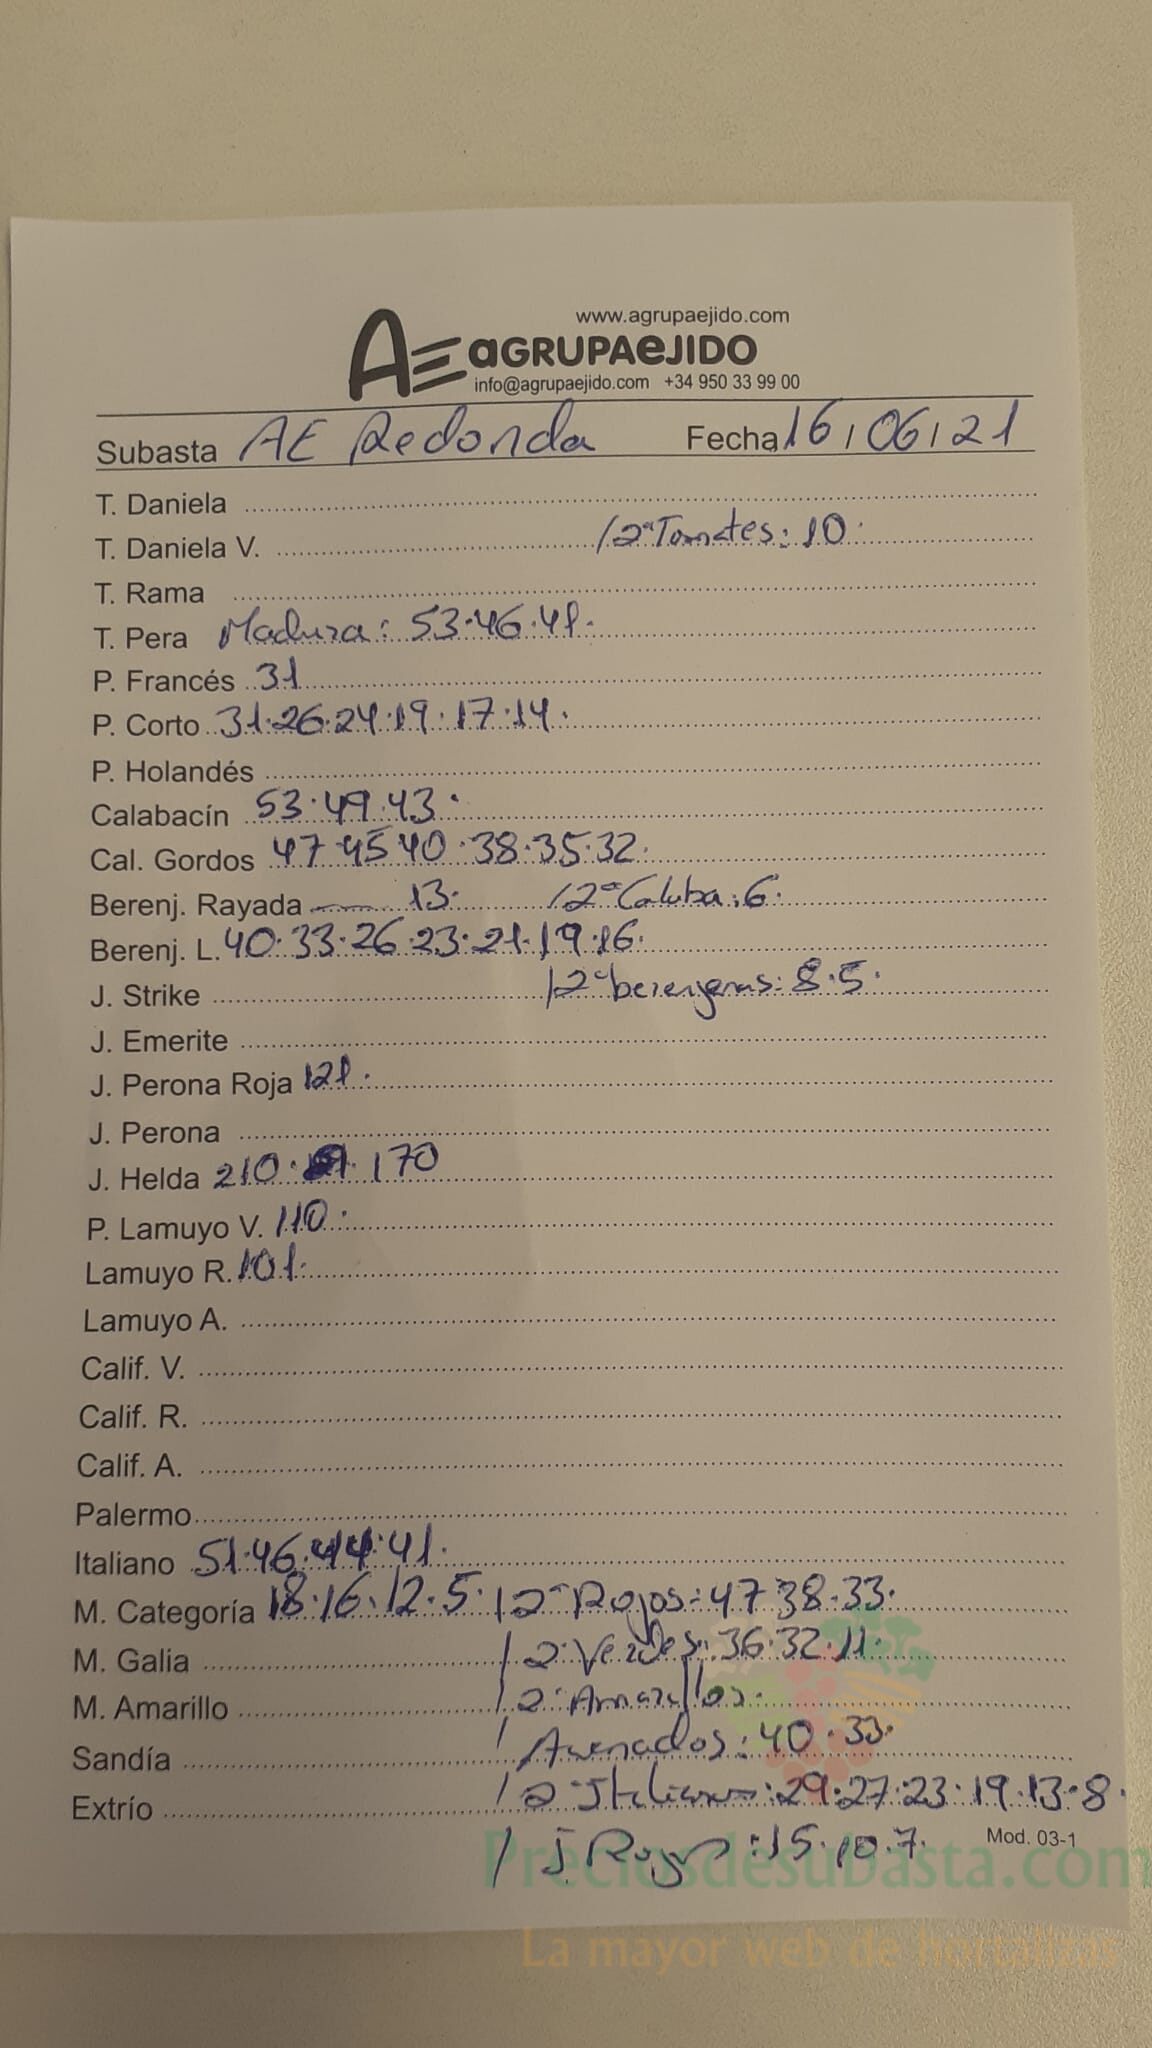 www.agrupaejido.com
AE aGRUPAeJIDO
info@agrupaejido.com +34 950 33 99 00
Subasta AE Redonda Fecha 16/06/21
T. Daniela
T. Daniela V. /2ª Tomates: 10.
T. Rama
T. Pera Madura: 53.46.41.
P. Francés 31
P. Corto 31.26.24.19.17.14.
P. Holandés
Calabacín 53.49.43.
Cal. Gordos 47 45 40.38.35.32.
Berenj. Rayada — 13. /2ª Calaba: 6.
Berenj. L. 40.33.26.23.21.19.16.
J. Strike /2ª berenjenas: 8.5.
J. Emerite
J. Perona Roja 121.
J. Perona
J. Helda 210. 170
P. Lamuyo V. 110.
Lamuyo R. 101.
Lamuyo A.
Calif. V.
Calif. R.
Calif. A.
Palermo
Italiano 51.46.44.41.
M. Categoría 18.16.12.5. /2ª Rojos: 47 38.33.
M. Galia /2ª Verdes: 36.32.11.
M. Amarillo /2ª Amarillos.
Sandía / Asurados: 40.33.
Extrío /2ª Italianos: 29.27.23.19.13.8.
/ J. Rojos: 15.10.7.
Mod. 03-1
Preciosdesubasta.com
La mayor web de hortalizas